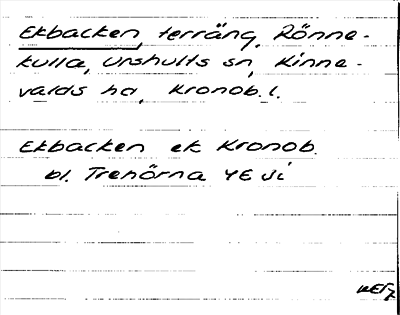 Ekbacken, terräng, Rönne-
kulla, Urshults sn, Kinne-
valds hd, Kronob. l.
Ekbacken ek Kronob.
bl. Trehörna 4E